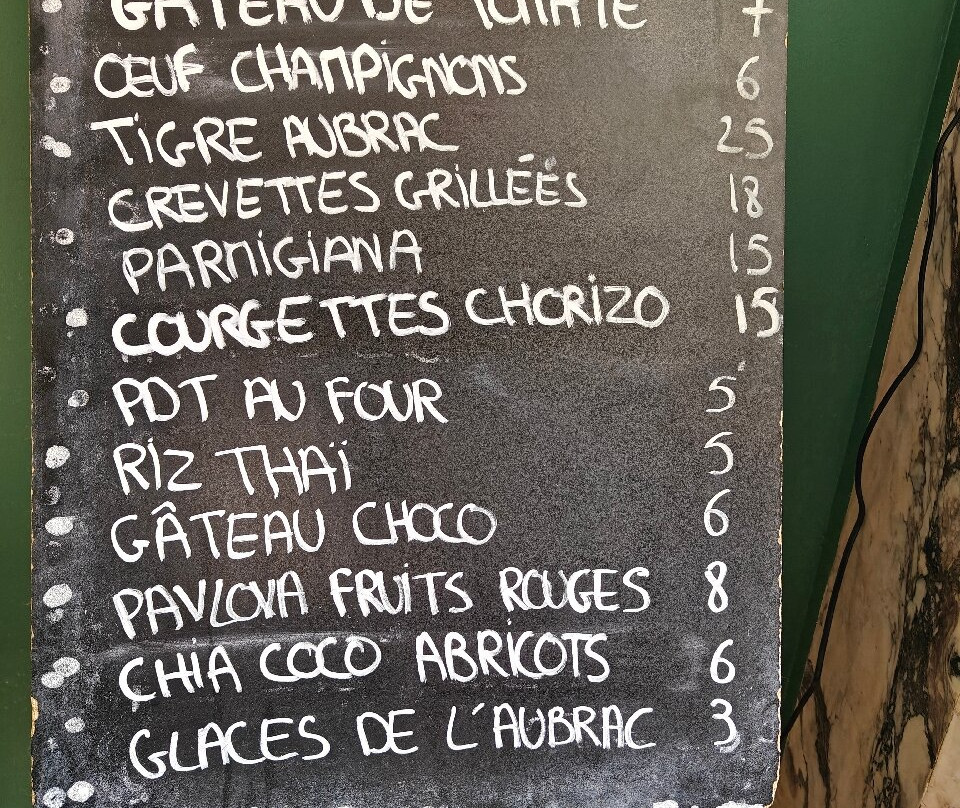 GÂTEAU DE 7
ŒUF CHAMPIGNONS 6
TIGRE AUBRAC 25
CREVETTES GRILLÉES 18
PARMIGIANA 15
COURGETTES CHORIZO 15
PDT AU FOUR 5
RIZ THAÏ 5
GÂTEAU CHOCO 6
PAVLOVA FRUITS ROUGES 8
CHIA COCO ABRICOTS 6
GLACES DE L'AUBRAC 3